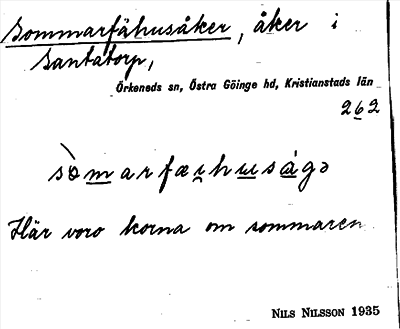 Sommarfähusåker, åker i
Santatorp,
Örkeneds sn, Östra Göinge hd, Kristianstads län
262
sòmarfæɩhusågə
Här voro korna om sommaren
NILS NILSSON 1935